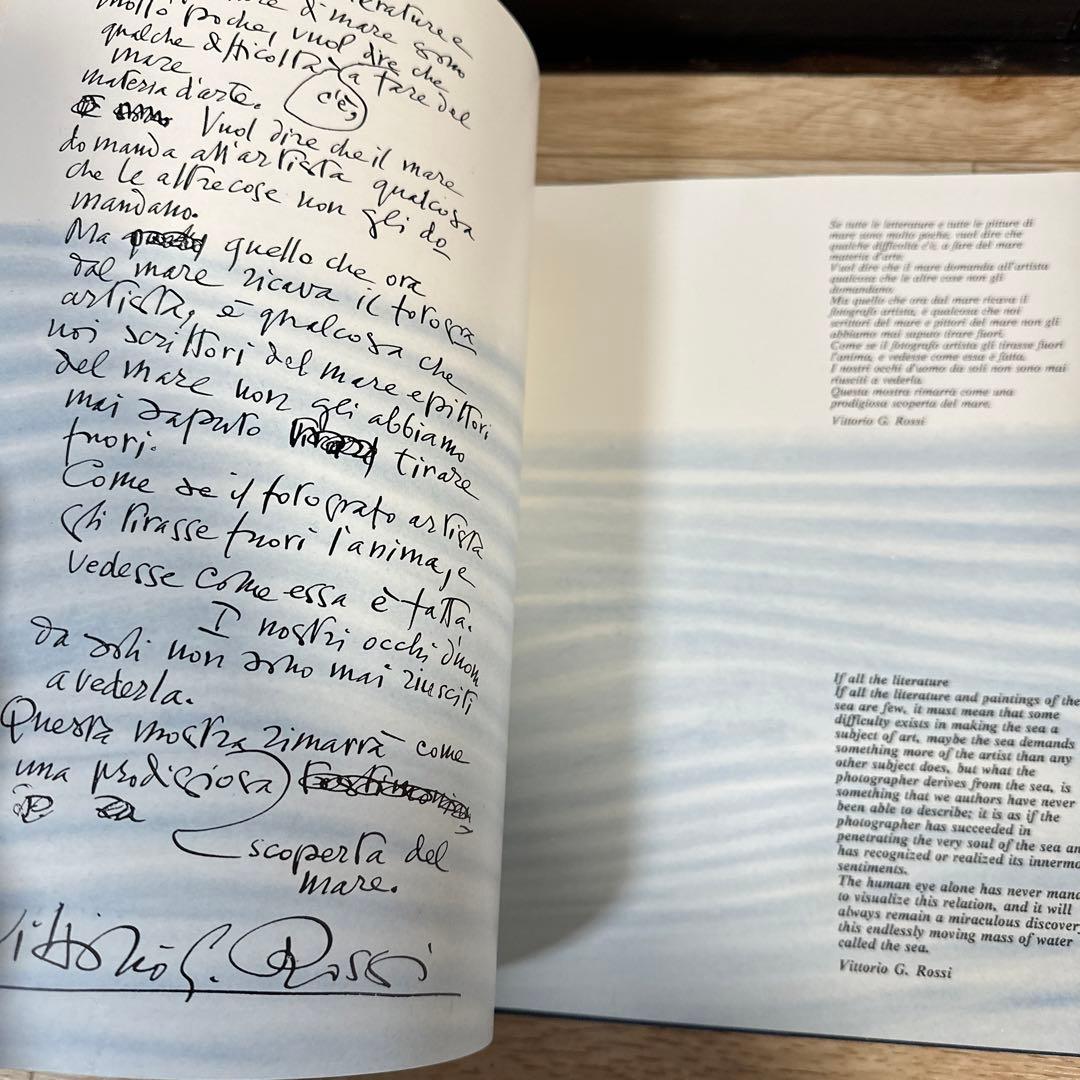 letterature e
di mare sono
molto poche, vuol dire che
qualche difficoltà a fare del
c'è,
mare
materia d'arte.
Vuol dire che il mare
domanda all'artista qualcosa
che le altre cose non gli do
mandano.
Ma quello che ora
dal mare ricava il fotogra
artista, è qualcosa che
noi scrittori del mare e pittori
del mare non gli abbiamo
mai saputo tirare
fuori.
Come se il fotografo artista
gli tirasse fuori l'anima, e
vedesse come essa è fatta.
I nostri occhi d'uom
da soli non sono mai riusciti
a vederla.
Questa mostra rimarrà come
una prodigiosa
scoperta del
mare.
Vittorio G. Rossi
Se tutte le letterature e tutte le pitture di
mare sono molto poche, vuol dire che
qualche difficoltà c'è, a fare del mare
materia d'arte.
Vuol dire che il mare domanda all'artista
qualcosa che le altre cose non gli
domandano.
Ma quello che ora dal mare ricava il
fotografo artista, è qualcosa che noi
scrittori del mare e pittori del mare non gli
abbiamo mai saputo tirare fuori.
Come se il fotografo artista gli tirasse fuori
l'anima, e vedesse come essa è fatta.
I nostri occhi d'uomo da soli non sono mai
riusciti a vederla.
Questa mostra rimarrà come una
prodigiosa scoperta del mare.
Vittorio G. Rossi
If all the literature
If all the literature and paintings of the
sea are few, it must mean that some
difficulty exists in making the sea a
subject of art, maybe the sea demands
something more of the artist than any
other subject does, but what the
photographer derives from the sea, is
something that we authors have never
been able to describe; it is as if the
photographer has succeeded in
penetrating the very soul of the sea an
has recognized or realized its innermo
sentiments.
The human eye alone has never mana
to visualize this relation, and it will
always remain a miraculous discover
this endlessly moving mass of water
called the sea.
Vittorio G. Rossi